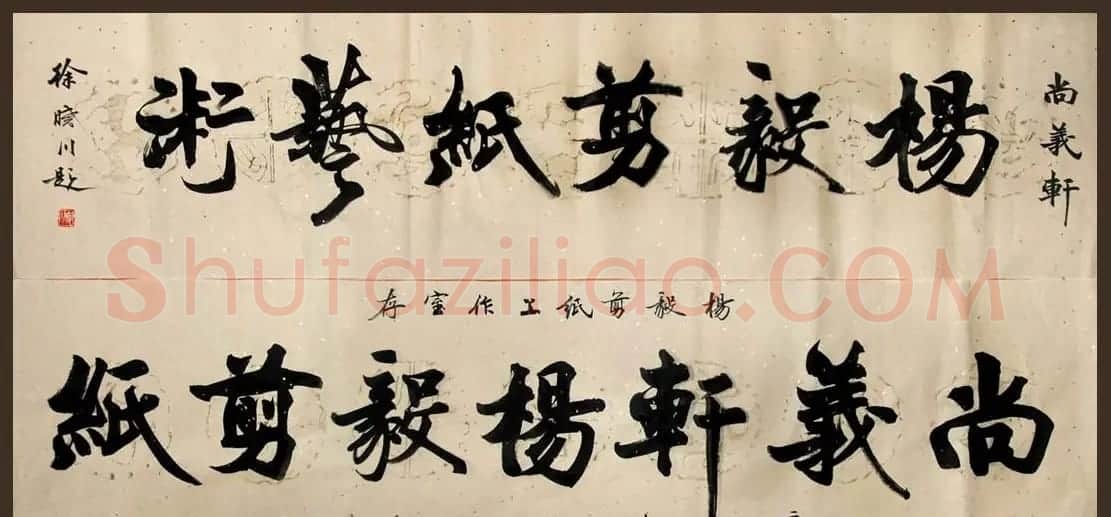 尚義軒
楊毅剪紙藝術
徐曉川題
楊毅剪紙工作室存
尚義軒楊毅剪紙
Shufaziliao.COM